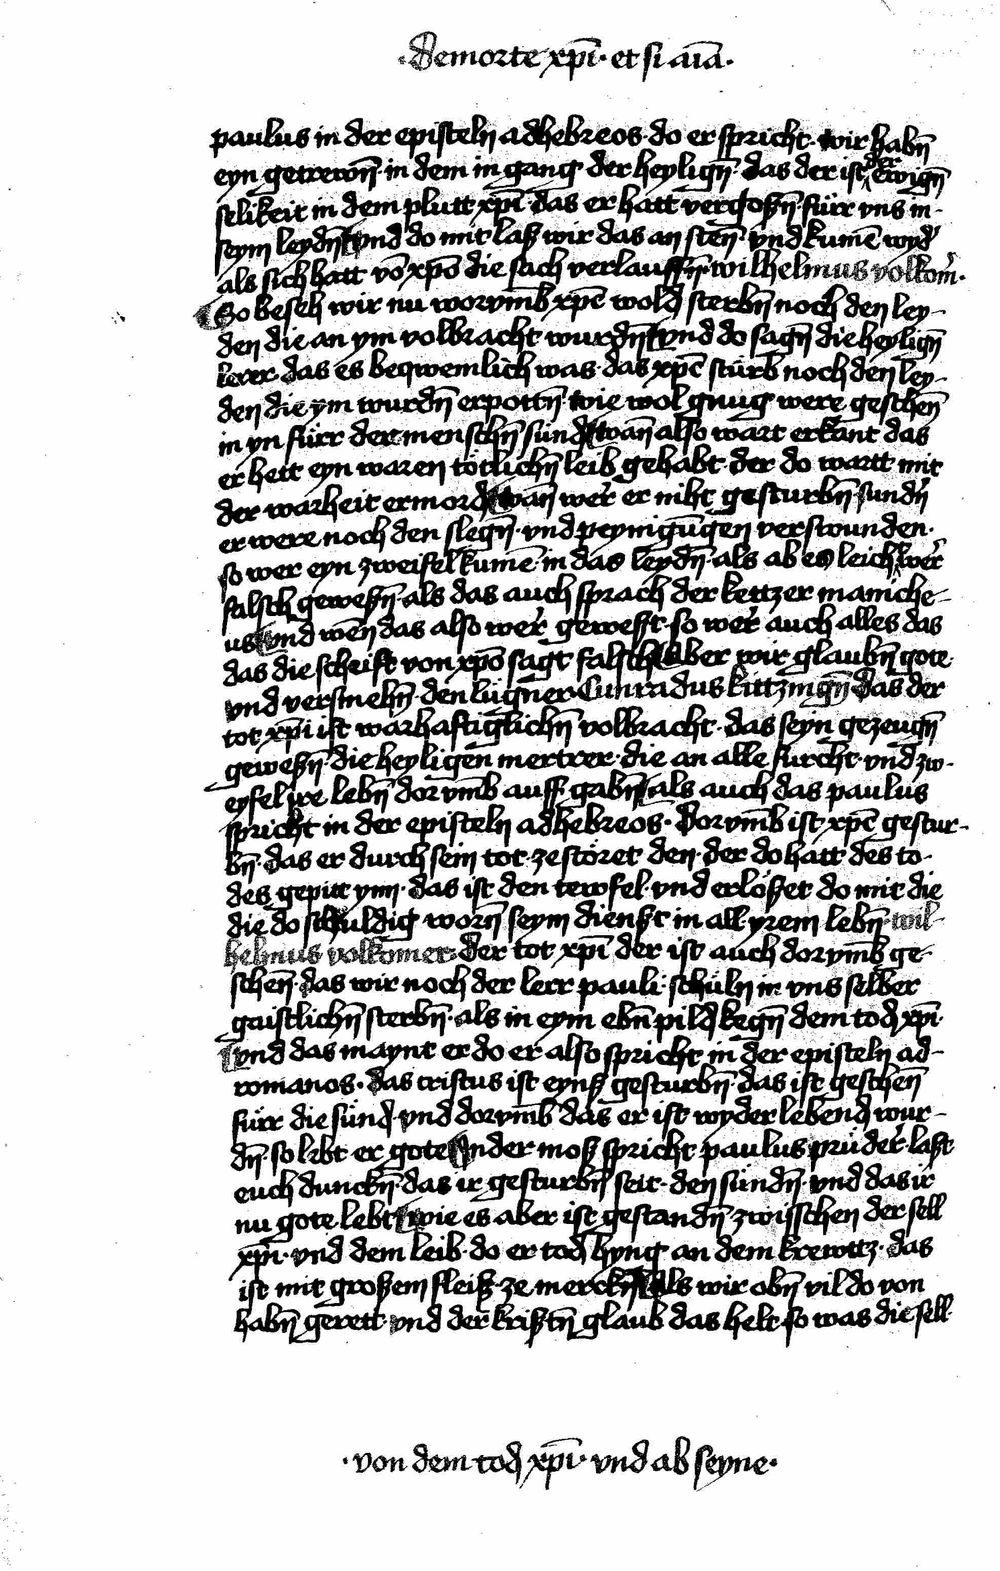 ·De morte xp̄i· et si aīa·
paulus in der episteln̄ adhebreos· do er spricht· wir habn̄
eyn getrewn̄· in dem in gang der heylign̄· das der ist der ewign̄
selikeit in dem plutt xp̄i· das er hatt vergoßn̄· fürr vns in·
seym leydn̄ vnd do mit laß wir das an sten̄· vnd kumē wyd̓
als sich hatt vō xp̄o die sach verlauffn̄· wilhelmus volkom̄·
So beseh wir nu worvm̄b xp̄c wold sterbn̄ noch den ley-
den die an ym volbracht wurdn̄ vnd do sagn̄ die heylign̄
lerer· das es beqwemlich was· das xp̄c stürb noch den ley-
den die ym wurdn̄ erpottn̄· wie wol gnug were geschen̄
in yn fürr der menschn̄ sünd wan̄ also wart erkant das
er hett eyn waren tötlichn̄ leib gehabt· der do wartt mit
der warheit ermord wan̄ wer̓ er niht gesturbn̄ sundn̓
er were noch den slegn̄· vnd peynigūgen verswunden·
so wer eyn zweifel kumē· in das leydn̄· als ab es leicht wer̓
falsch geweßn̄· als das auch sprach der kettzer maniche-
us vnd wen̄ das also wer̓ geweßt· so wer̓ auch alles das
das die schrift von xp̄o sagt falsch Aber wir glaubn̄ gote·
vnd versmehn̄· den lügner· Cunradus kittzingn̄ das der
tot xp̄i ist warhaftiglichn̄ volbracht· das seyn gezeugn̄
geweßn̄· die heyligen mertrer· die an alle furcht· vnd zw-
eyfel ire lebn̄ dorvm̄b auff gabn̄ als auch das paulus
spricht in der episteln̄ adhebreos· Dorvm̄b ist xp̄c gestur-
bn̄· das er durch sein tot· zestöret den· der do hatt des to-
des gepitt ynn· das ist den tewfel· vnd erlößet do mit die
die do schuldig worn̄ seym dienßt in all yrem lebn̄· wil-
helmus volkomer· der tot xp̄i der ist auch dorvm̄b ge-
schen̄· das wir noch der lerr pauli· schüln in vns selber
gaistlichn̄ sterbn̄· als in eym ebn̄ pild kegn̄ dem tod xp̄i·
vnd das maynt er do er also spricht in der episteln̄ ad-
romanos· das cristus ist eynß gesturbn̄ das ist geschen̄
fürr die sünd· vnd dorvm̄b das er ist wyder lebend wur-
dn̄· so lebt er gote In der moß spricht paulus prüder̓· laßt
euch dunckn̄· das ir gesturbn̄ seit· den sündn̄· vnd das ir
nu gote lebt wie es aber ist gestandn̄ zwisschen der sell
xp̄i· vnd dem leib· do er tod hyng an dem krewttz· das
ist mit großem fleiß· ze merckn̄ Als wir obn̄ vil do von
habn̄ gerett· vnd der krißtn̄ glaub das helt· so was die sell
·von dem tod xp̄i· vnd ab seyne·